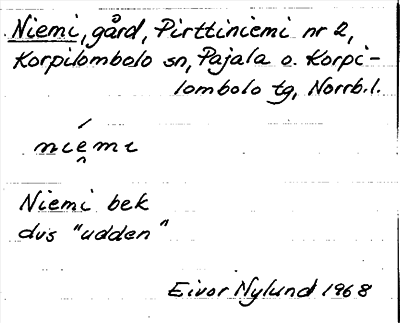 Niemi, gård, Pirttiniemi nr 2,
Korpilombolo sn, Pajala o. Korpi-
lombolo tg, Norrb. l.
niémi
Niemi bek
dvs "udden"
Eivor Nylund 1968